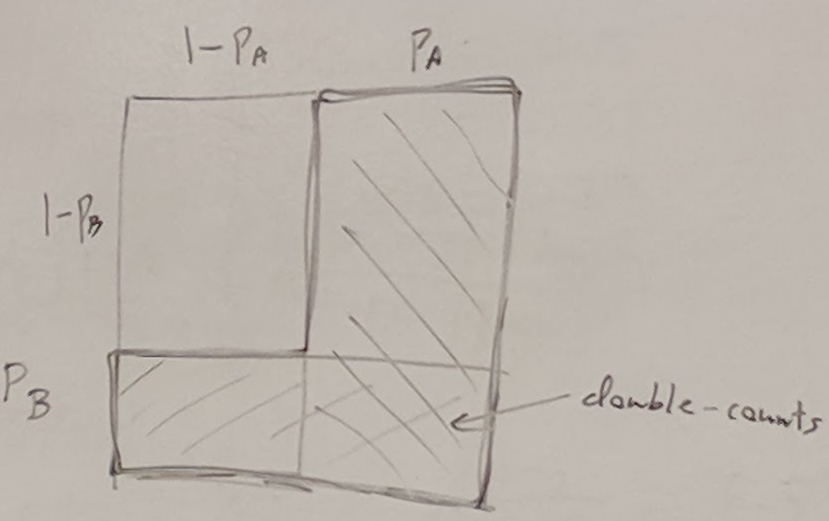 1-PA
PA
1-PB
PB
double-counts